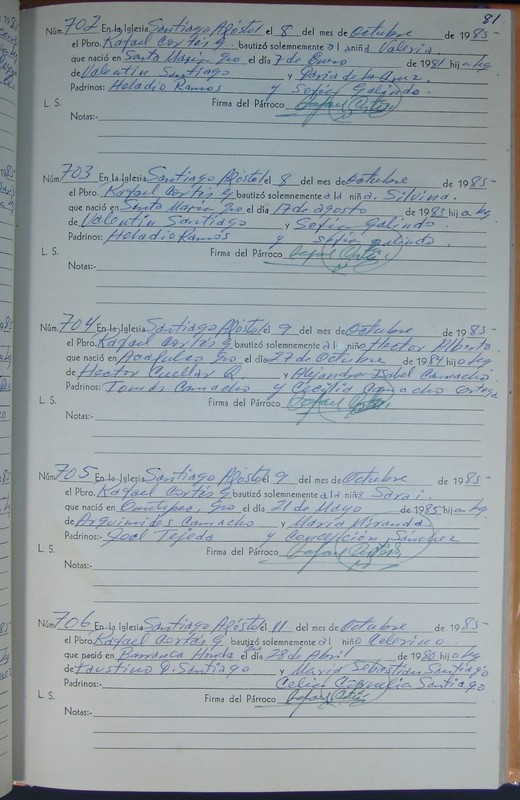 81
Núm. 702 En la Iglesia Santiago Apóstol el 8 del mes de Octubre de 1985-
el Pbro. Rafael Cortés G. bautizó solemnemente a l a niña Valeria.
que nació en Santa María, Gro el día 7 de Enero de 1981 hij a lg.
de Valentín Santiago y María de la Cruz.
Padrinos: Heladio Ramos y Sofía Galindo.
L. S. Firma del Párroco
Notas:-
Núm. 703 En la Iglesia Santiago Apóstol el 8 del mes de Octubre de 1985-
el Pbro. Rafael Cortés G bautizó solemnemente a la niña. Silvina.
que nació en Santa María Gro el día 17 de agosto de 1983 hij a lg.
de Valentín Santiago y Sofía Galindo.
Padrinos: Heladio Ramos y Sofía galindo.
L. S. Firma del Párroco
Notas:-
Núm. 704 En la Iglesia Santiago Apóstol el 9 del mes de Octubre de 1985-
el Pbro. Rafael Cortés G. bautizó solemnemente a l niño Hector Alberto.
que nació en Acapulco, Gro el día 27 de Octubre de 1984 hij o lg.
de Hector Cuellar y Alejandra Isabel Camacho.
Padrinos: Tomás Camacho y Cecilia Camacho Ortega
L. S. Firma del Párroco
Notas:-
Núm. 705 En la Iglesia Santiago Apóstol el 9 del mes de Octubre de 1985-
el Pbro. Rafael Cortés G. bautizó solemnemente a la niña Sarai.
que nació en Ometepec, Gro el día 21 de Mayo de 1985 hij a lg.
de Arquimides Camacho y María Miranda
Padrinos:- Joel Tejeda y Concepción Sánchez
L. S. Firma del Párroco
Notas:-
Núm. 706 En la Iglesia Santiago Apóstol el 11 del mes de Octubre de 1985-
el Pbro. Rafael Cortés G. bautizó solemnemente a l niño Celerino
que nació en Barranca Honda el día 28 de Abril de 1980 hij o lg.
de Faustino D. Santiago y María Sebastián Santiago
Padrinos:- Celia Cornelia Santiago
L. S. Firma del Párroco
Notas:-